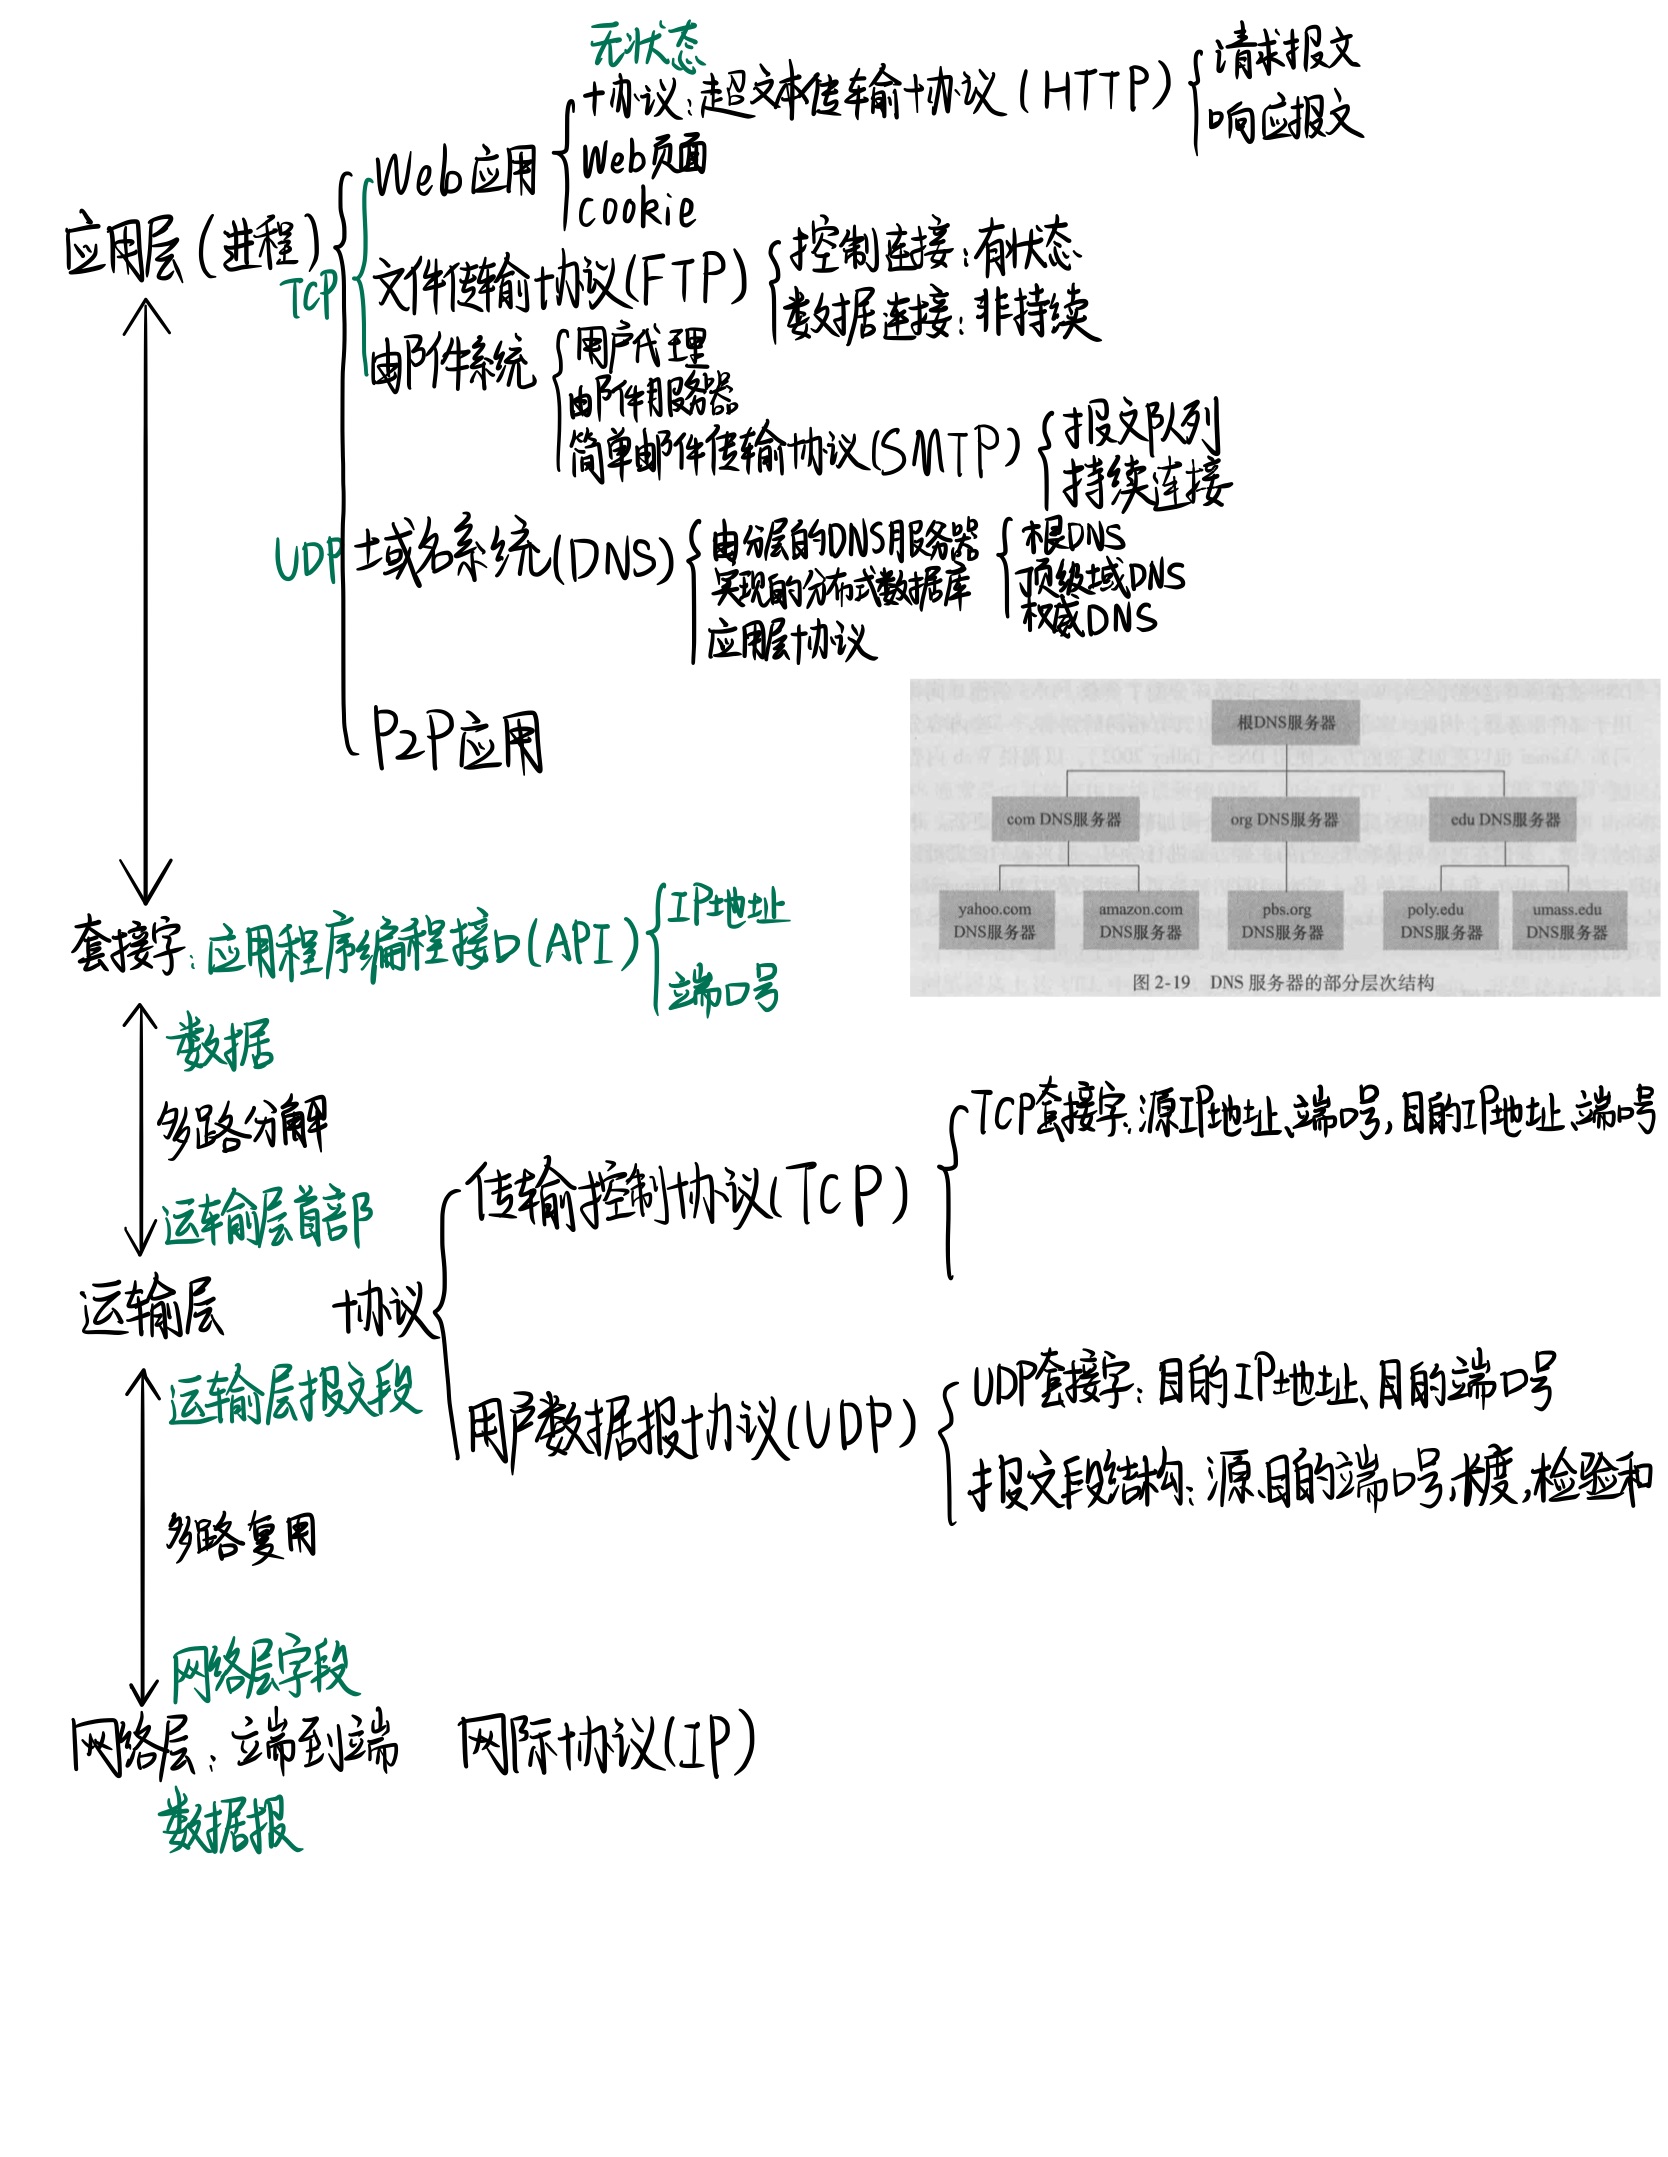 无状态
协议：超文本传输协议（HTTP）
请求报文
响应报文
Web应用
Web页面
cookie
应用层（进程）
TCP
文件传输协议(FTP)
控制连接：有状态
数据连接：非持续
邮件系统
用户代理
邮件服务器
简单邮件传输协议(SMTP)
报文队列
持续连接
UDP
域名系统(DNS)
由分层的DNS服务器
实现的分布式数据库
根DNS
顶级域DNS
权威DNS
应用层协议
P2P应用
根DNS服务器
com DNS服务器
org DNS服务器
edu DNS服务器
yahoo.com
DNS服务器
amazon.com
DNS服务器
pbs.org
DNS服务器
poly.edu
DNS服务器
umass.edu
DNS服务器
图 2-19 DNS 服务器的部分层次结构
套接字：应用程序编程接口(API)
IP地址
端口号
数据
多路分解
运输层首部
运输层
协议
传输控制协议(TCP)
TCP套接字：源IP地址、端口号，目的IP地址、端口号
用户数据报协议(UDP)
UDP套接字：目的IP地址、目的端口号
报文段结构：源、目的端口号，长度，检验和
运输层报文段
多路复用
网络层字段
网络层：端到端
网际协议(IP)
数据报